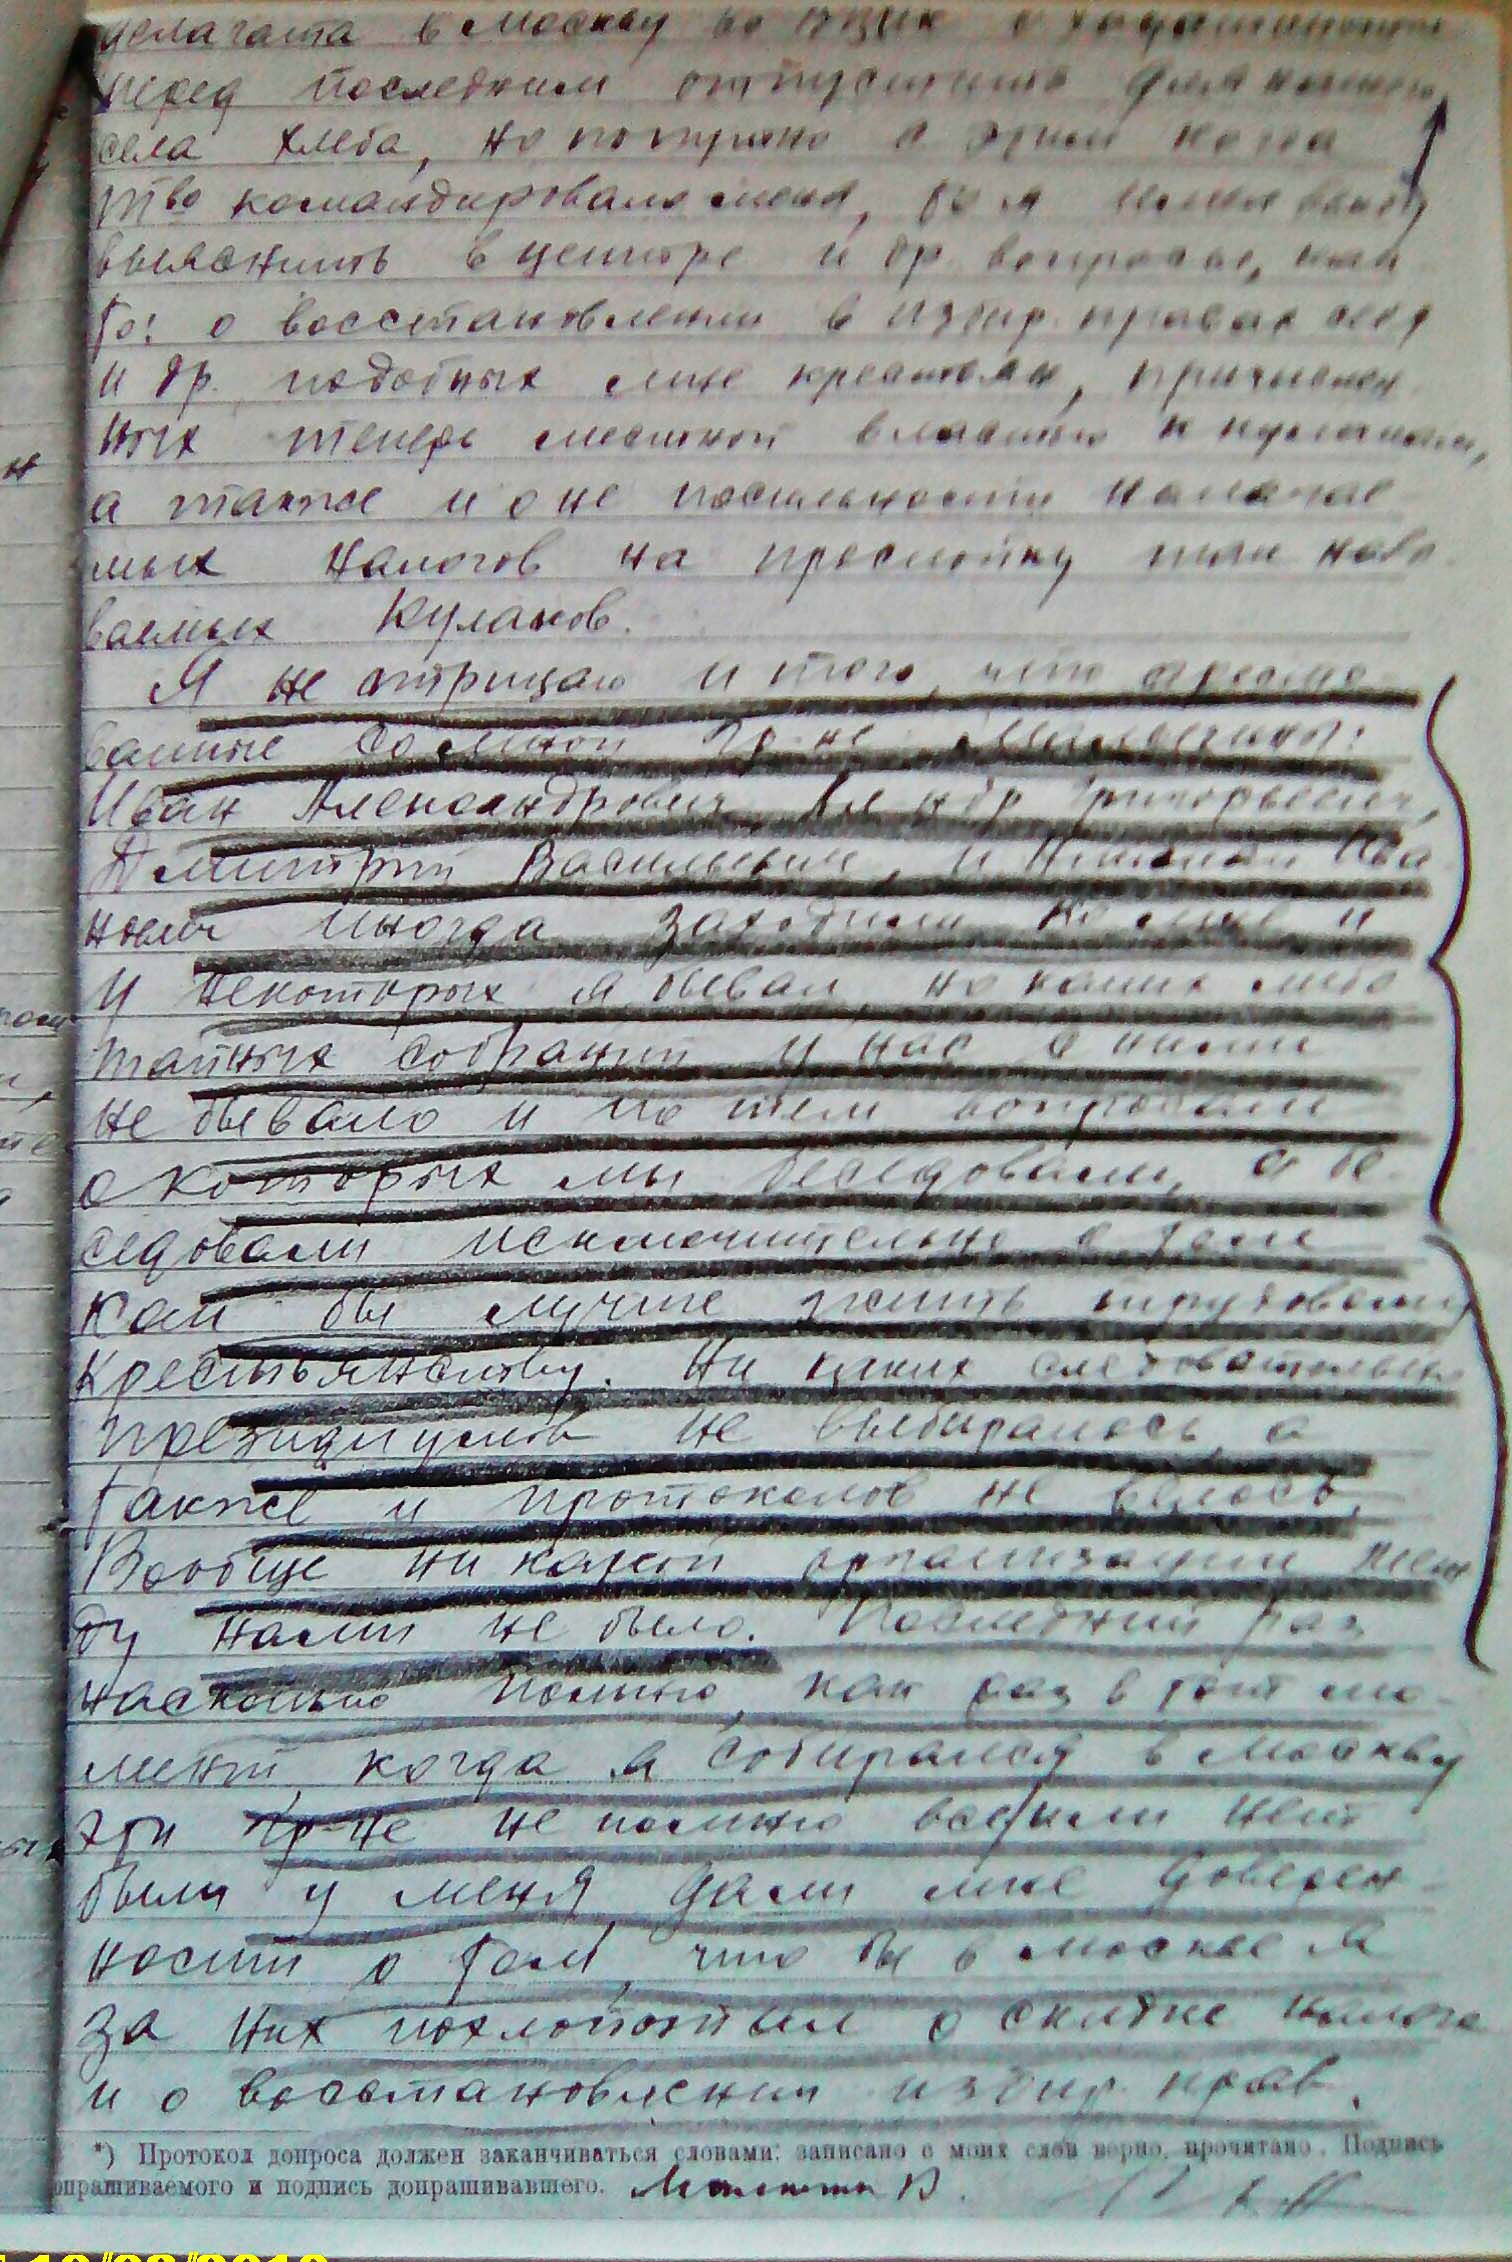 делагата в Москву во ВЦИК с ходатайством
перед последним отпустить для нашего
села хлеба, но попутно с этим
тво командировало меня, что я имел ввиду
выяснить в центре и др. вопросы, как
то: о восстановлении в избир. правах себя
и др. подобных мне крестьян, причислен
ных теперь местной властью к кулакам,
а также и о не посильности налагае
мых налогов на прослойку так назы
ваемых Кулаков.
Я не отрицаю и того, что аресто
ванные со мной гр-не
Иван Александрович, Ал-ндр Григорьевич,
Дмитрий Васильевич, и Николай Ива
нович иногда заходили ко мне и
у некоторых я бывал, но каких либо
тайных собраний у нас с ними
не бывало и по тем вопросам
о которых мы беседовали, а бе-
седовали исключительно о том
как бы лучше жить трудовому
Крестьянству. Ни каких следовательно
президиумов не выбиралось, а
также и протоколов не велось.
Вообще ни какой организации меж
ду нами не было. Последний раз
насколько помню, как раз в тот мо-
мент, когда я собирался в Москву
эти гр-не не помню все или нет
были у меня, дали мне доверен-
ности о том, что бы в Москве я
за них похлопотал о скидке налога
и о восстановлении избир. прав.
*) Протокол допроса должен заканчиваться словами: записано с моих слов верно, прочитано. Подпись
опрашиваемого и подпись допрашивавшего.